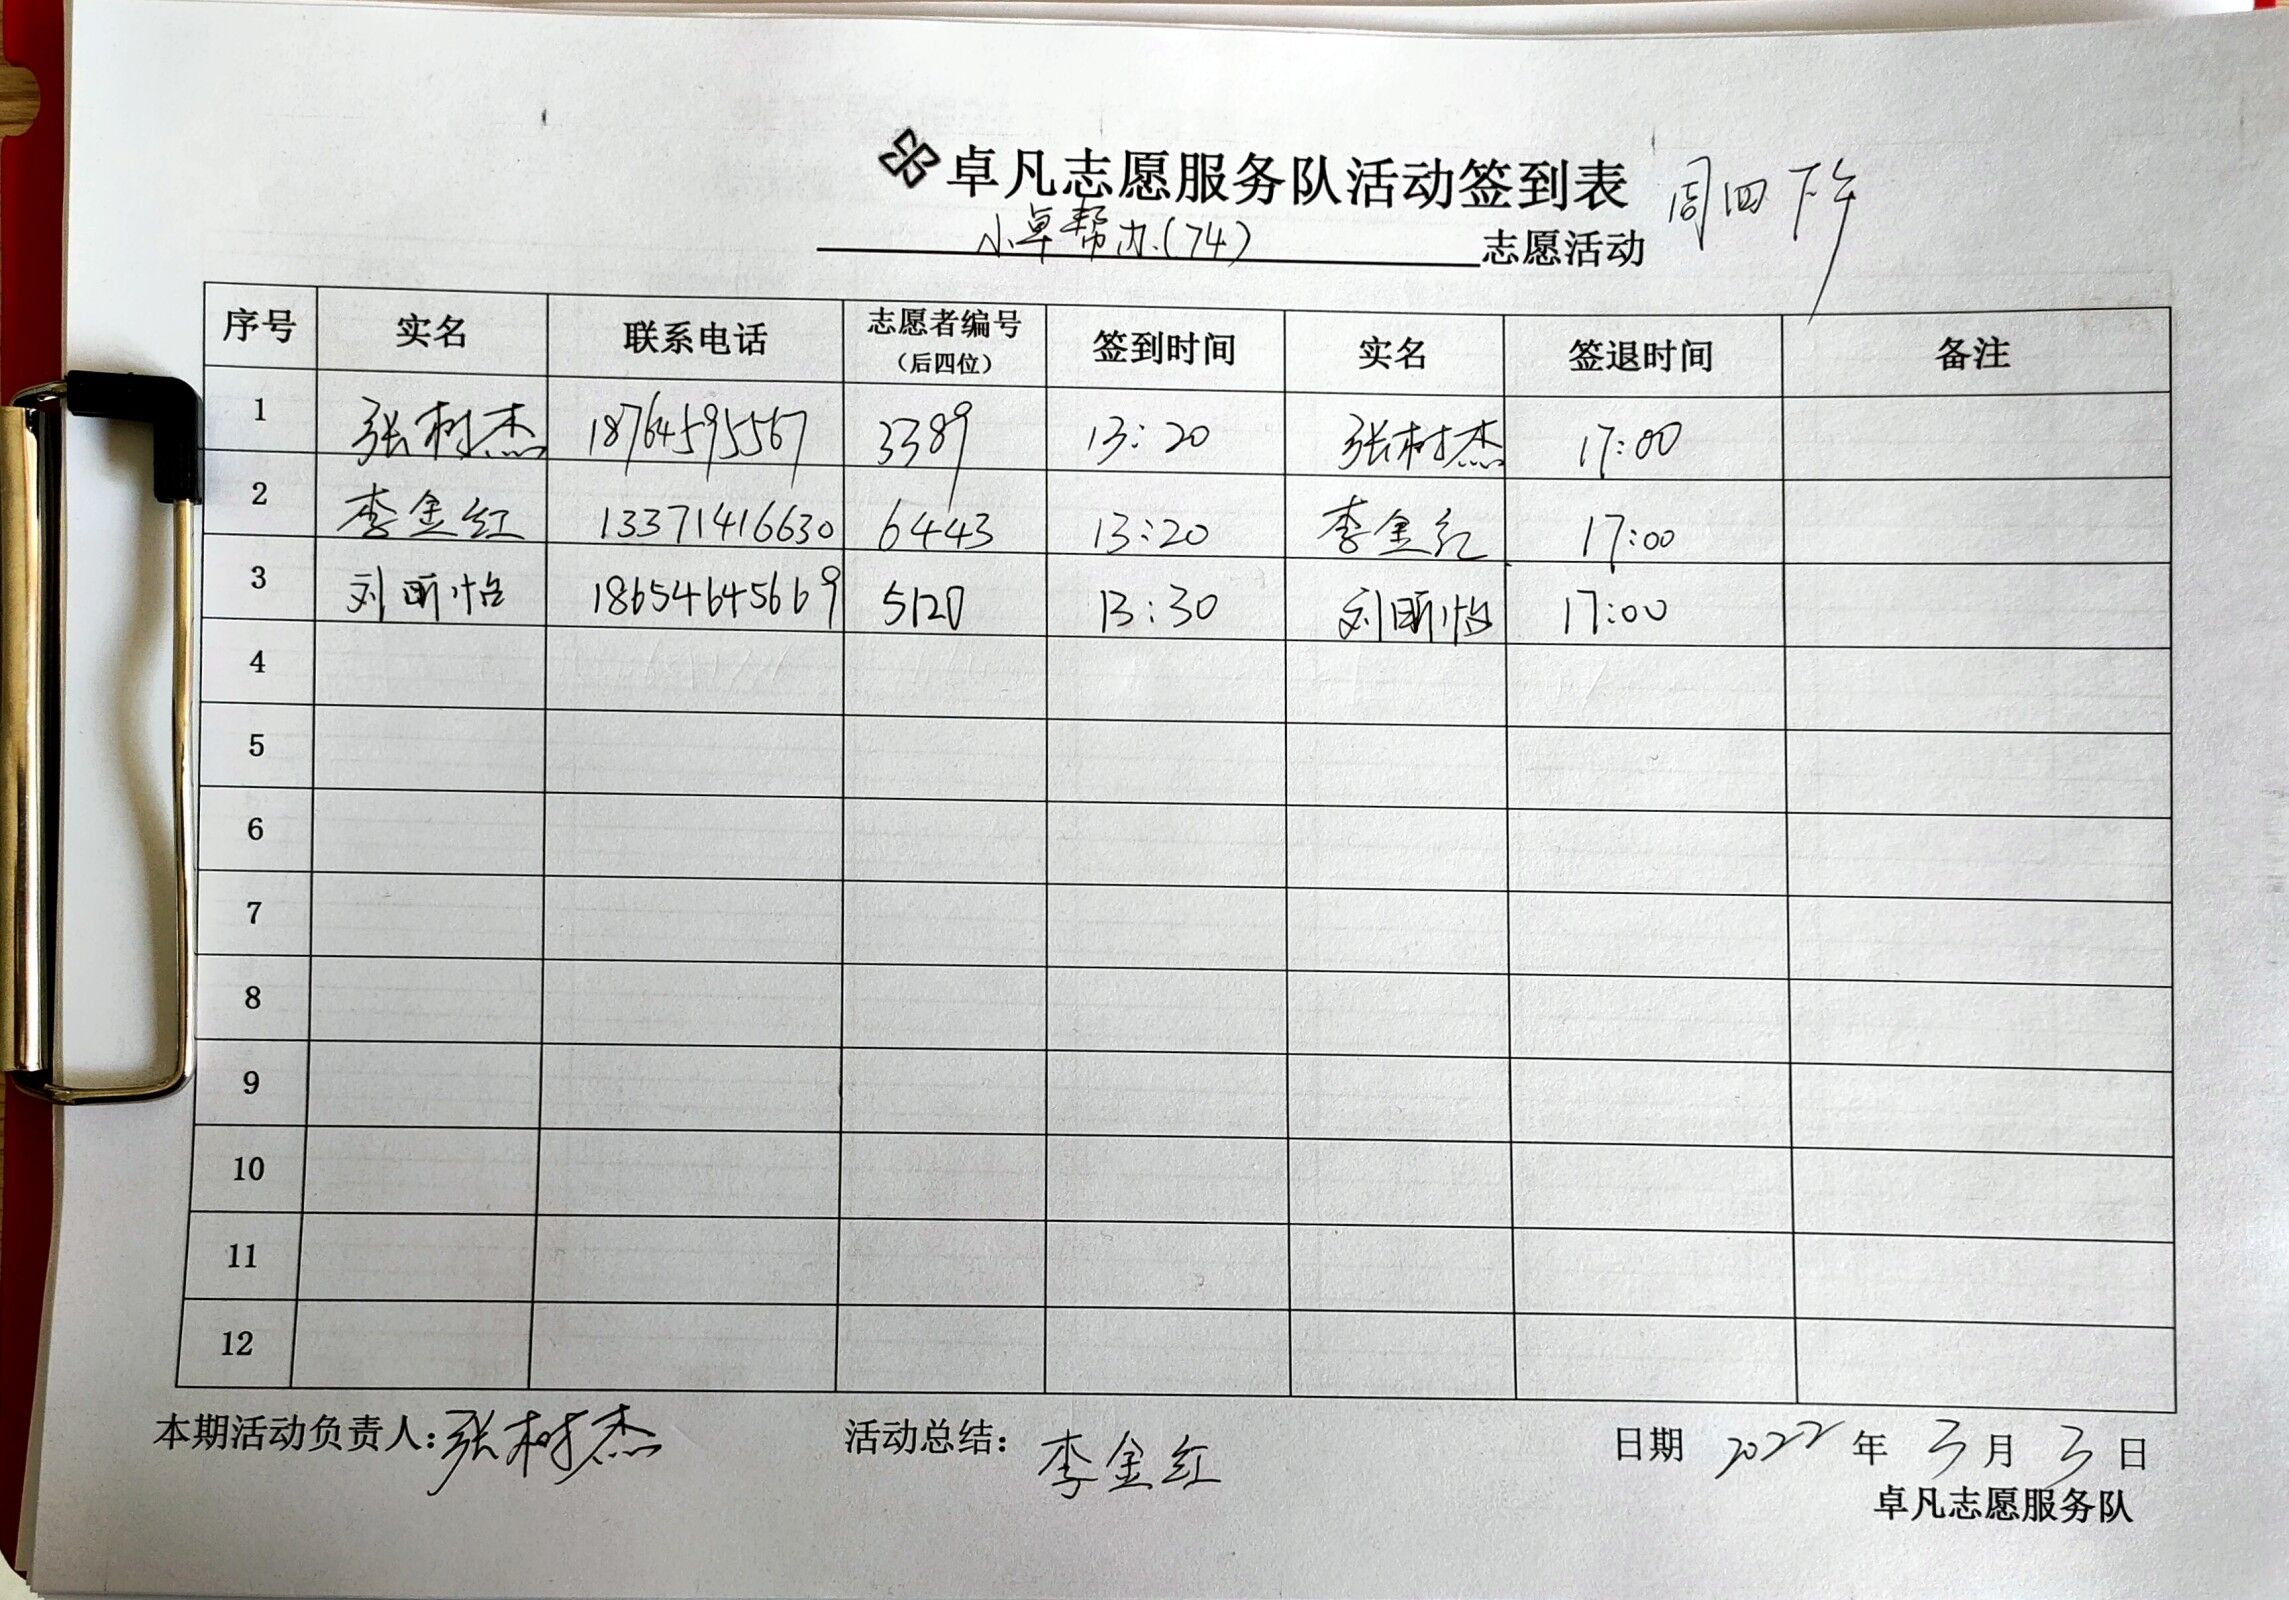 卓凡志愿服务队活动签到表 周四下午
小卓帮办(74) 志愿活动
序号 实名 联系电话 志愿者编号 (后四位) 签到时间 实名 签退时间 备注
1 张树杰 18764595567 3389 13:20 张树杰 17:00
2 李金红 13371416630 6443 13:20 李金红 17:00
3 刘昕怡 18654645669 5120 13:30 刘昕怡 17:00
4
5
6
7
8
9
10
11
12
本期活动负责人:张树杰 活动总结:李金红 日期 2022 年 3 月 3 日
卓凡志愿服务队